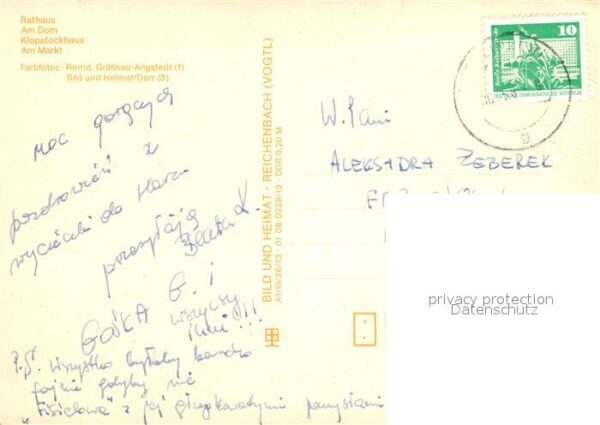 Rathaus
Am Dom
Klopstockhaus
Am Markt
Farbfotos: Remd, Gräfinau-Angstedt (1)
Bild und Heimat/Darr (3)
Moc gorących
pozdrowień z
wycieczki do Harzu
przesyłają
Beata K.
Gośka G. i
wszyscy
inni!!!
P.S. Wszystko byłoby bardzo
fajnie gdyby nie
"Fisielowa" z jej głupkowatymi pomysłami
BILD UND HEIMAT · REICHENBACH (VOGTL)
A1/III/26/13 · 01 08 0228/13 · DDR 0,20 M
10
DEUTSCHE DEMOKRATISCHE REPUBLIK
W. Pani
ALEKSADRA ZEBEREK
privacy protection
Datenschutz